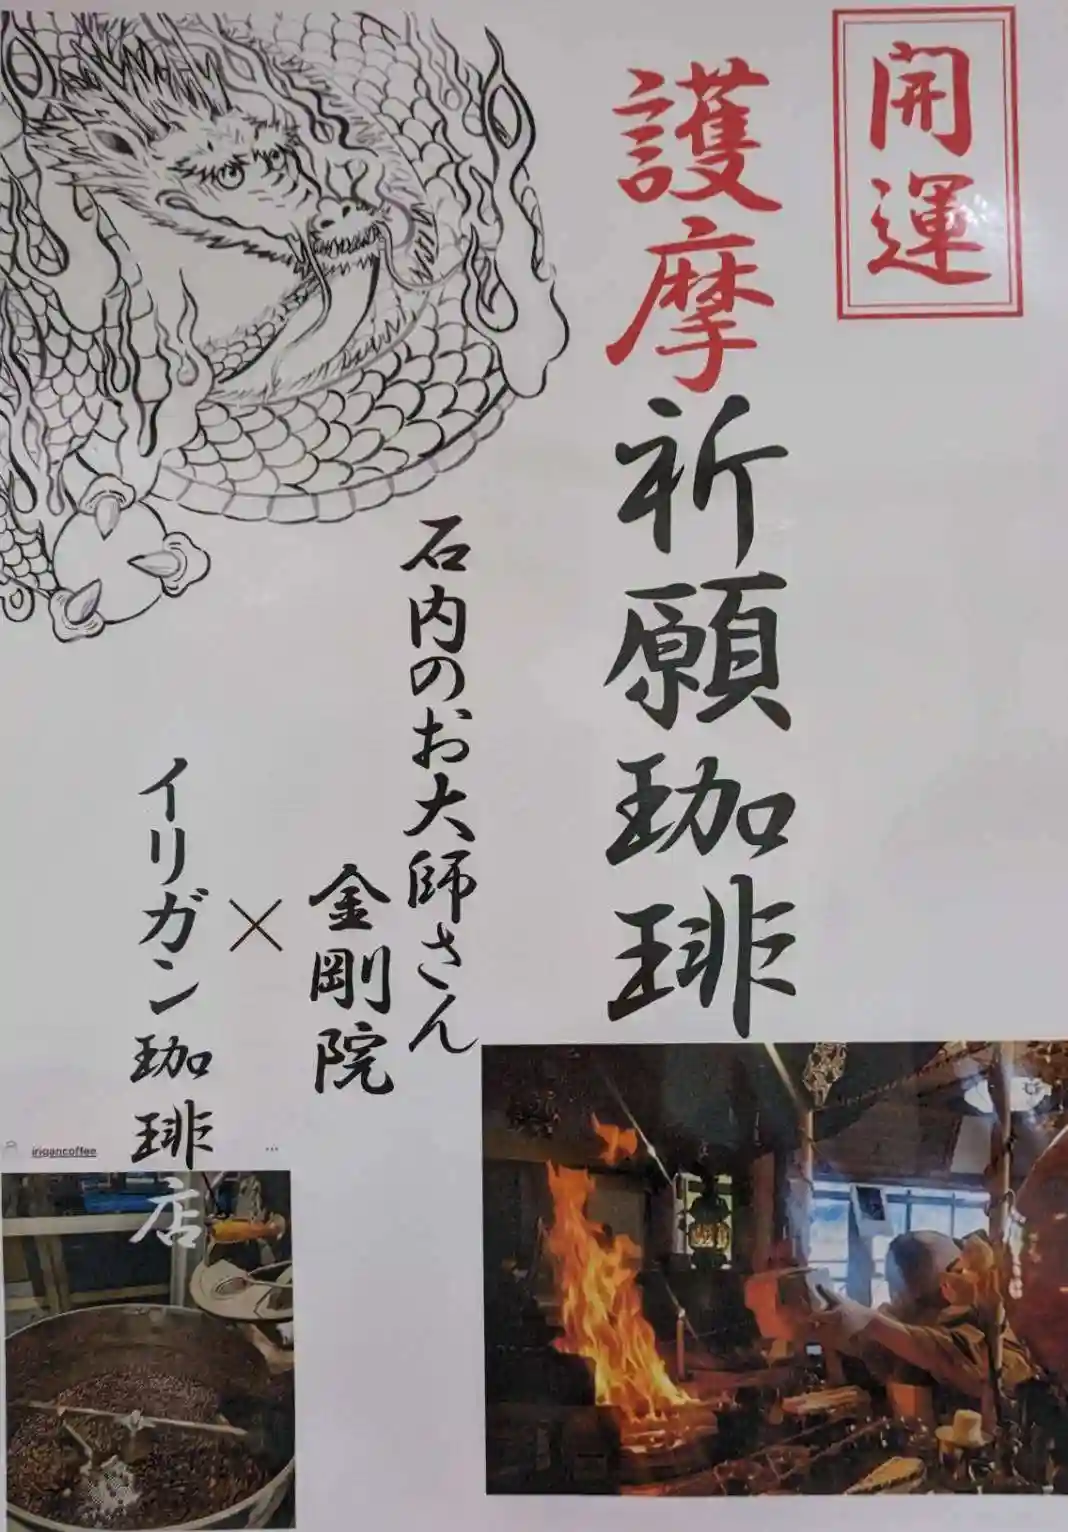 開運
護摩祈願珈琲
石内のお大師さん
金剛院
×
イリガン珈琲店
irigancoffee